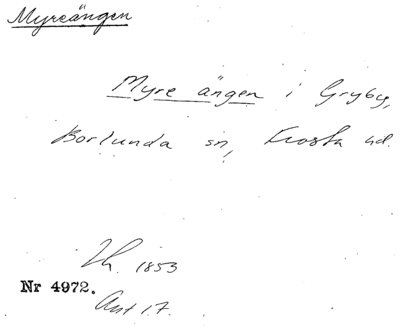 Myreängen
Myre ängen i Gryby,
Borlunda sn, Frosta hd.
1853
Nr 4972.
Ant 17.